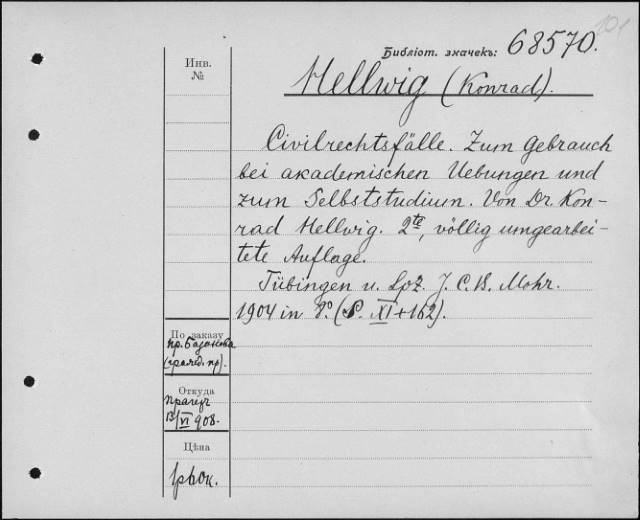 101
Библіот. значекъ: 68570.
Инв.
№
Hellwig (Konrad).
Civilrechtsfälle. Zum Gebrauch
bei akademischen Uebungen und
zum Selbststudium. Von Dr. Kon-
rad Hellwig. 2te, völlig umgearbei-
tete Auflage.
Tübingen u. Lpz. J. C. B. Mohr.
1904 in 8º. (S. XI+162).
По заказу
пр. Базанова
(гражд. пр).
Откуда
Прагеръ
13/VI 908.
Цѣна